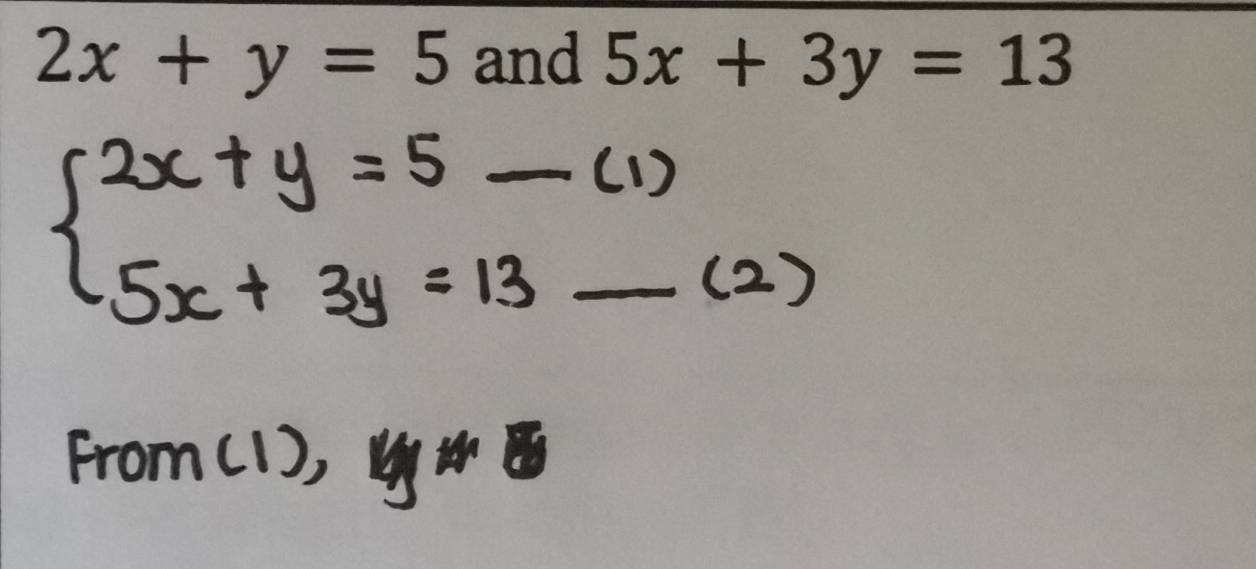 2x + y = 5 and 5x + 3y = 13
2x + y = 5 — (1)
5x + 3y = 13 — (2)
From (1),